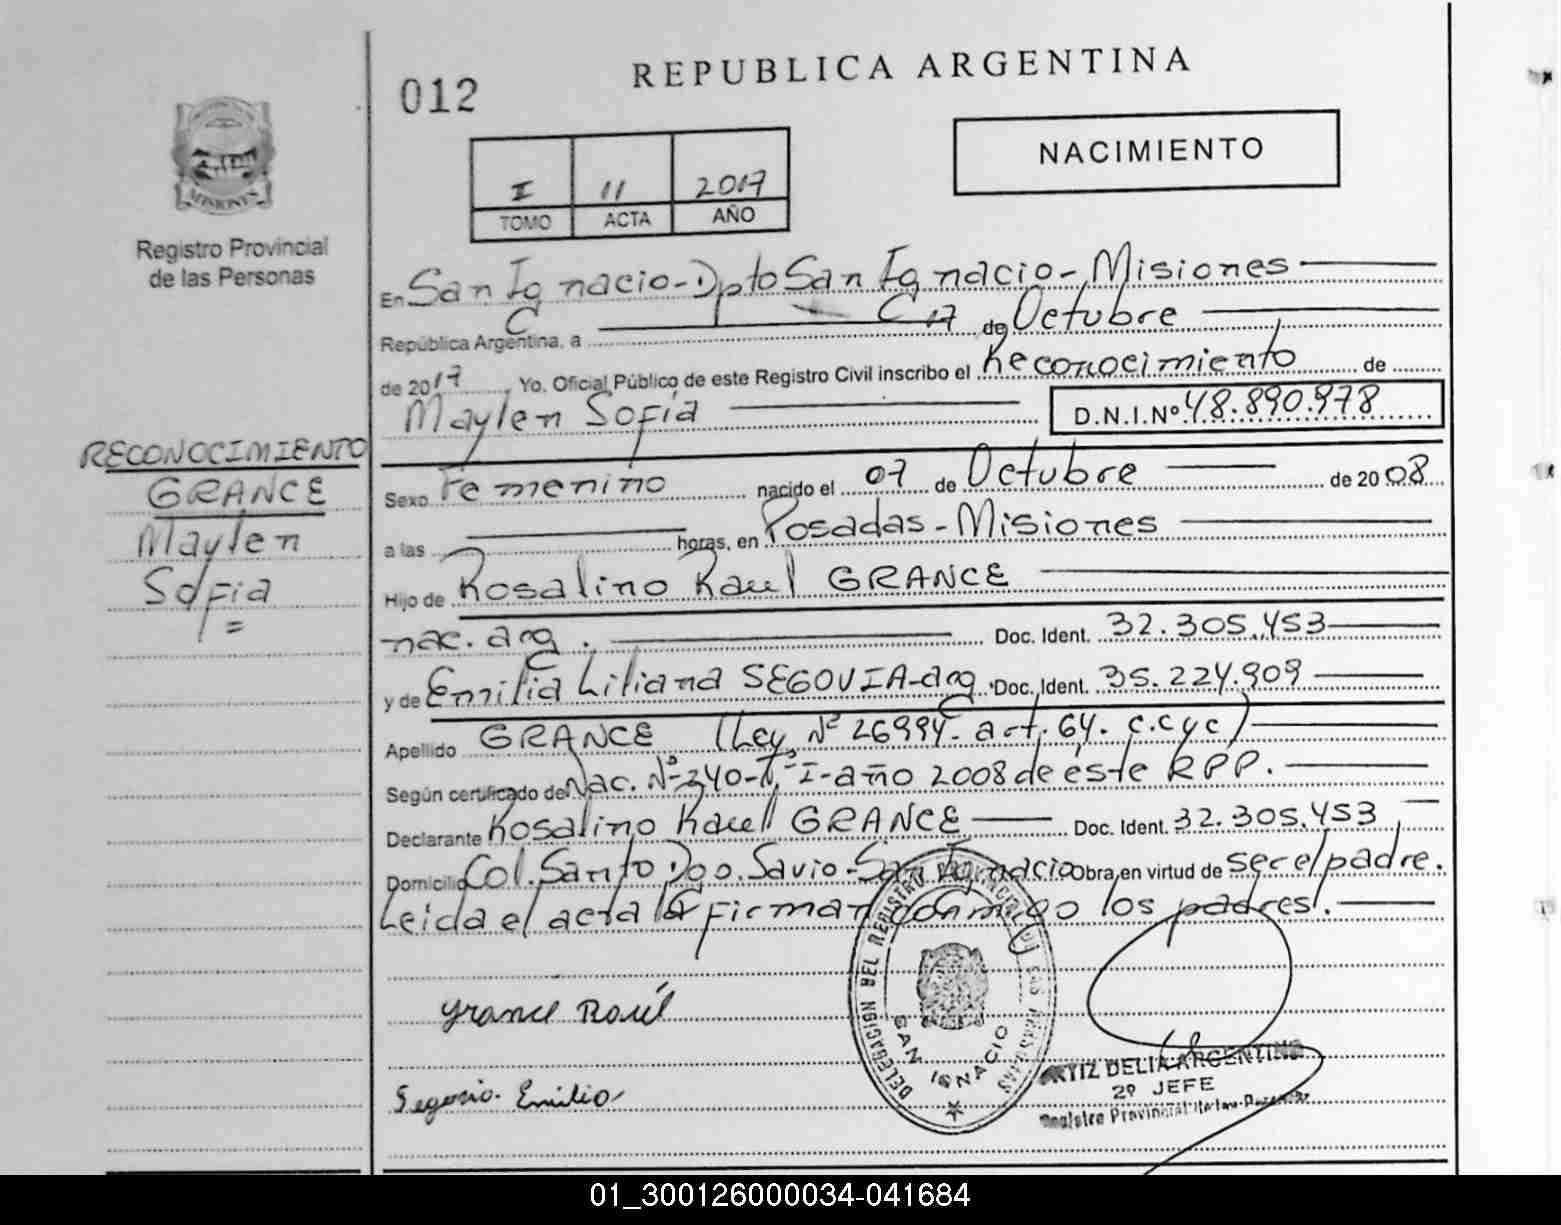 012
REPUBLICA ARGENTINA
NACIMIENTO
I 11 2017
TOMO ACTA AÑO
MISIONES
Registro Provincial
de las Personas
En San Ignacio - Dpto San Ignacio - Misiones
República Argentina, a 17 de Octubre
de 2017 Yo, Oficial Público de este Registro Civil inscribo el Reconocimiento de
Maylen Sofía D.N.I.Nº 48.890.978
RECONOCIMIENTO
GRANCE
Maylen
Sofia
Sexo Femenino nacido el 07 de Octubre de 2008
a las horas, en Posadas - Misiones
Hijo de Rosalino Raul GRANCE
nac. arg. Doc. Ident. 32.305.453
y de Emilia Liliana SEGOVIA - arg. Doc. Ident. 35.224.909
Apellido GRANCE (Ley Nº 26994 - art. 64. C.C y C)
Según certificado de Nac. Nº 240 - Tº I - año 2008 de éste RPP.
Declarante Rosalino Raul GRANCE Doc. Ident. 32.305.453
Domicilio Col. Santo Dgo. Savio - San Ignacio Obra en virtud de ser el padre.
Leida el acta la firman conmigo los padres.
Grance Raúl
Segovia Emilia
DELEGACION DEL REGISTRO PROVINCIAL DE LAS PERSONAS
SAN IGNACIO
ORTIZ DELIA ARGENTINA
2º JEFE
Registro Provincial de las Personas
01_300126000034-041684